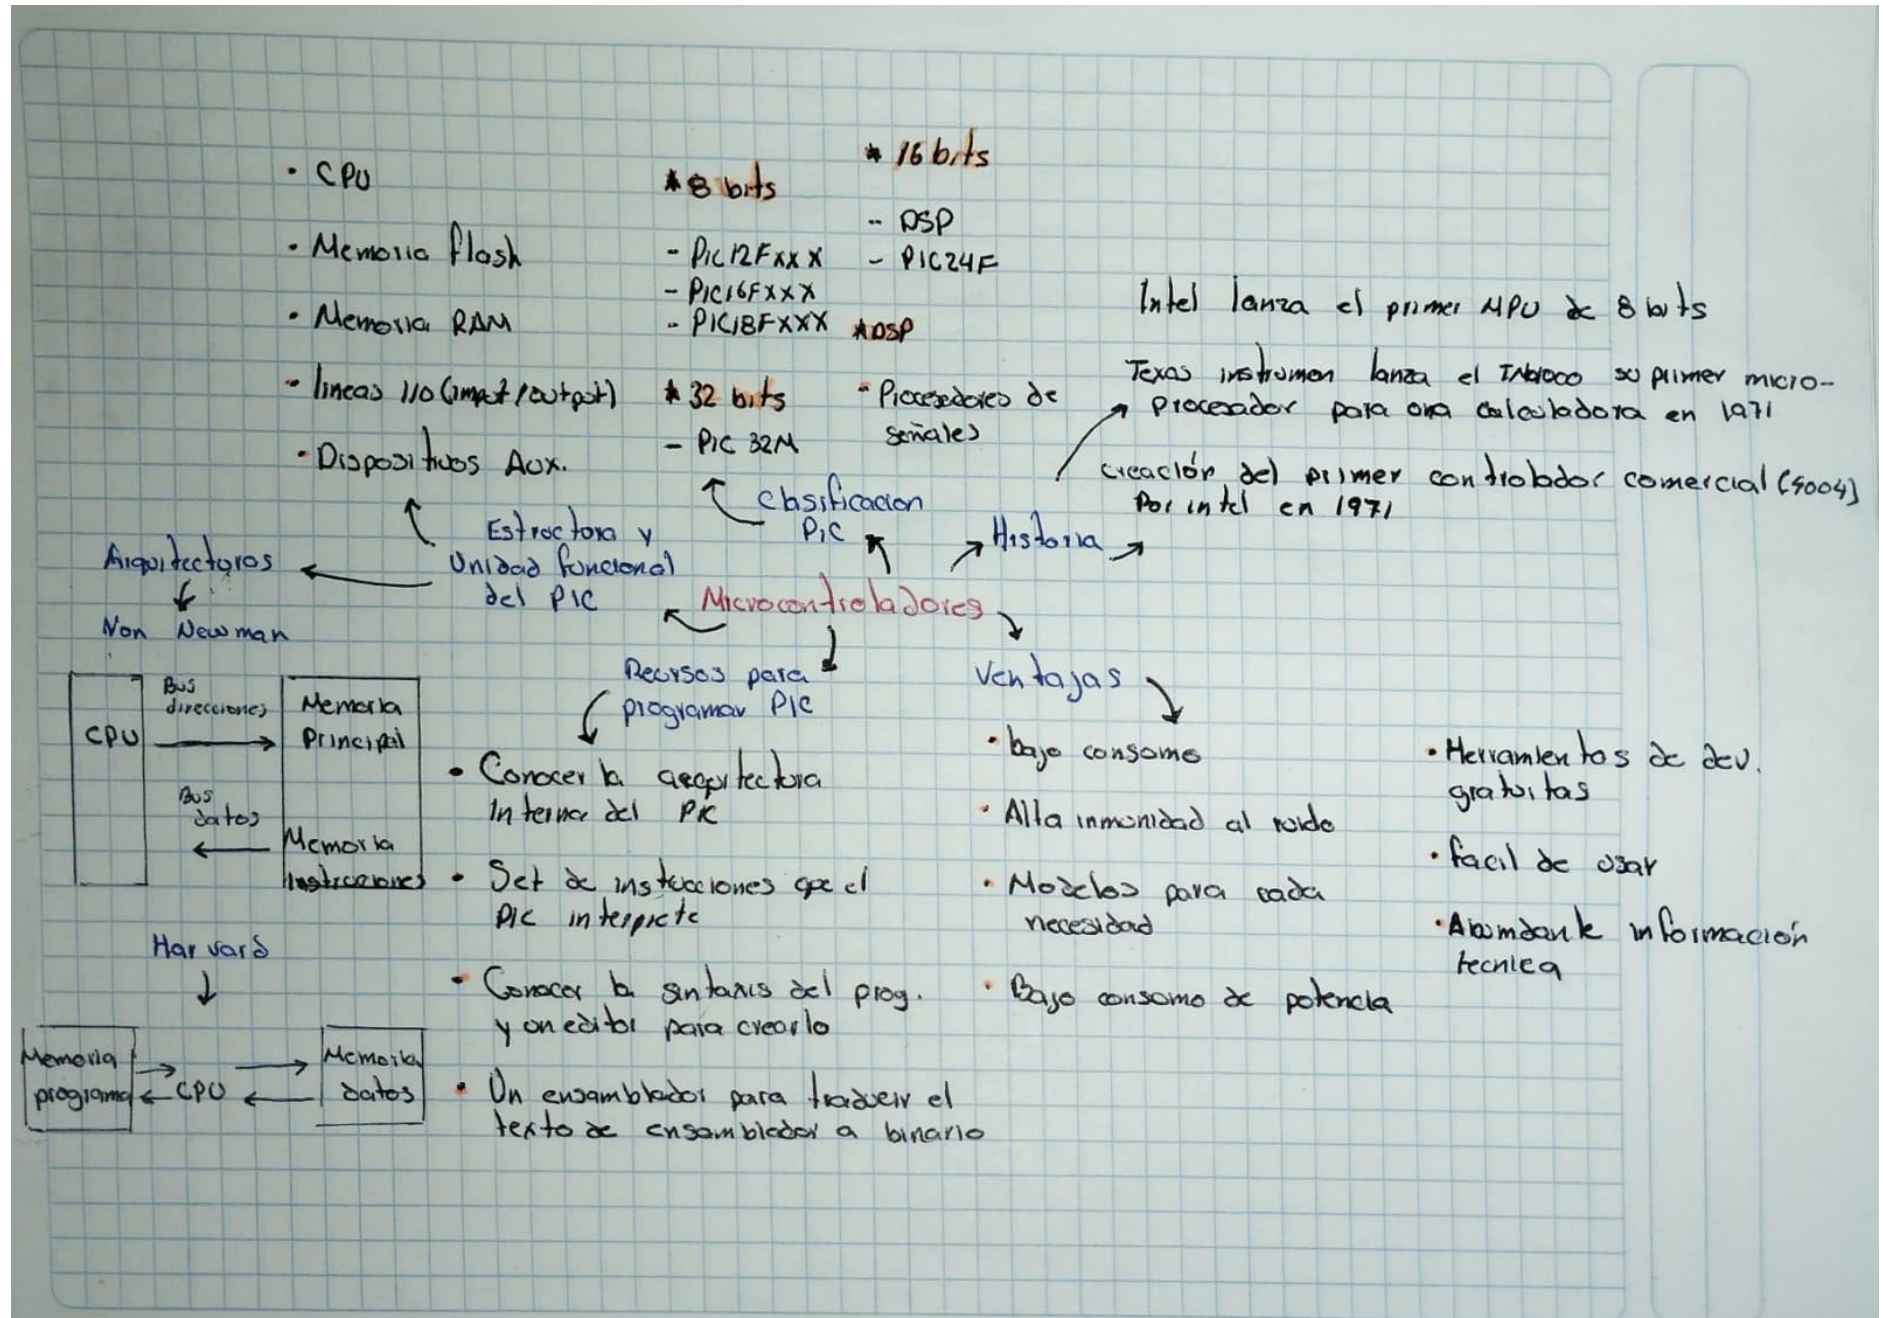 • CPU
• Memoria flash
• Memoria RAM
• lineas I/O (input/output)
• Dispositivos Aux.
* 8 bits
- PIC12FXXX
- PIC16FXXX
- PIC18FXXX
* 32 bits
- PIC 32M
* 16 bits
- DSP
- PIC24F
* DSP
- Procesedores de
señales
Intel lanza el primer MPU de 8 bits
Texas instrumen lanza el su primer micro-
procesador para una calculadora en 1971
creación del primer controlador comercial (4004)
Por intel en 1971
Clasificacion
PIC
Historia
Estructura y
Unidad funcional
del PIC
Arquitecturas
Non Newman
Microcontroladores
CPU
Bus
direcciones
Memoria
Principal
Bus
datos
Memoria
Instrucciones
Harvard
Memoria
programa
CPU
Memoria
datos
Recursos para
programar PIC
• Conocer la arquitectura
Interna del PIC
• Set de instrucciones que el
PIC interprete
• Conocer la sintaxis del prog.
y un editor para crearlo
• Un ensamblador para traducir el
texto de ensamblador a binario
Ventajas
• bajo consumo
• Alta inmunidad al ruido
• Modelos para cada
necesidad
• Bajo consumo de potencia
• Herramientas de dev.
gratuitas
• facil de usar
• Abundante información
tecnica